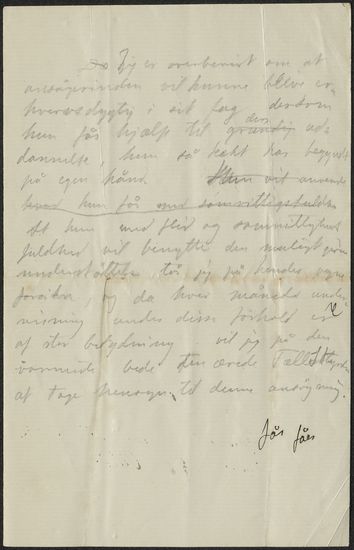 Jeg er overbevist om at
ansøgerinden vil kunne blive er-
hvervsdygtig i sit fag dersom
hun får hjælp til grundig ud-
dannelse, hun så kækt har begyndt
på egen hånd. Hun vil anvende
hvad hun får med samvittighedsfuldhed
At hun med flid og samvittigheds
fuldhed vil benytte den mulig
understøttelse tør jeg på hendes vegne
forsikre, og da hver måneds under-
visning under disse forhold er
af stor betydning vil jeg på den
varmeste bede den ærede
at tage hensyn til denne ansøgning.
fås fåes